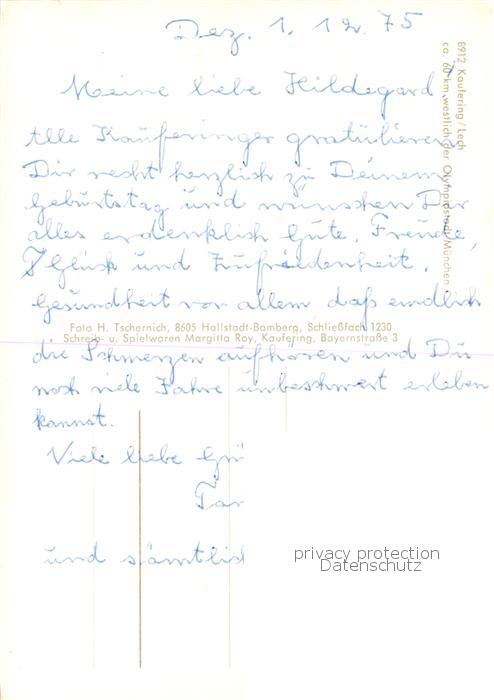 Dez. 1. 12. 75
Meine liebe Hildegard
Alle Kauferinger gratulieren
Dir recht herzlich zu Deinem
Geburtstag und wünschen Dir
alles erdenklich Gute, Freude,
Glück und Zufriedenheit,
Gesundheit vor allem daß endlich
die Schmerzen aufhören und Du
noch viele Jahre unbeschwert erleben
kannst.
Viele liebe Grü
Tan
und sämtlich
8912 Kaufering/Lech
ca. 60 km westlich der Olympiastadt München
Foto H. Tschernich, 8605 Hallstadt-Bamberg, Schließfach 1230
Schreib- u. Spielwaren Margitta Roy, Kaufering, Bayernstraße 3
privacy protection
Datenschutz